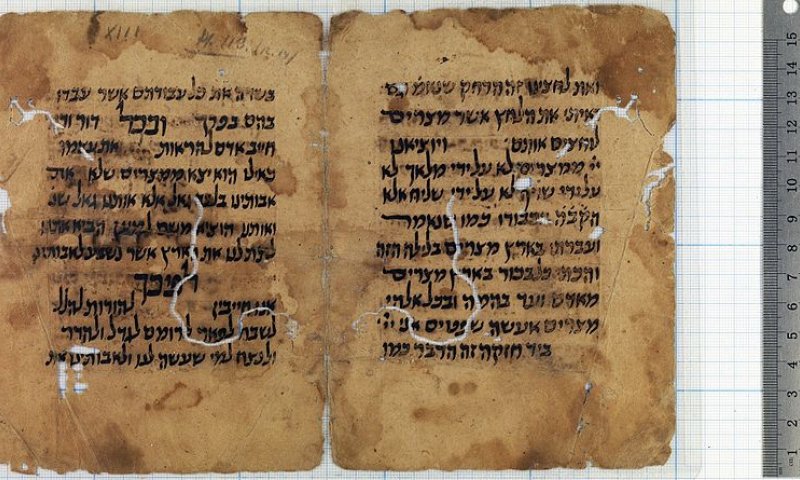 ואת לחצינו זה הדחק שנאמ וגם
ראיתי את הלחץ אשר מצרים
לוחצים אותם ויוציאנו
ייי ממצרים לא על ידי מלאך לא
על ידי שרף לא על ידי שליח אלא
הקבה בכבודו כמו שנאמר
ועברתי בארץ מצרים בלילה הזה
והכתי כל בכור בארץ מצרים
מאדם ועד בהמה ובכל אלהי
מצרים אעשה שפטים אני ייי
ביד חזקה זה הדבר כמו
XIII
בשדה את כל עבודתם אשר עבדו
בהם בפרך ובכל דור ודור
חייב אדם להראות את עצמו
כאילו הוא יצא ממצרים שלא את
אבותינו בלבד גאל אלא אותנו גאל שנ
ואותנו הוציא משם למען הביא אותנו
לתת לנו את הארץ אשר נשבע לאבותינו
לפיכך
אנו חייבין להודות להלל
לשבח לפאר לרומם לגדל ולהדר
ולנצח למי שעשה לנו ולאבותינו את
15
14
13
12
11
10
9
8
7
6
5
4
3
2
1
cm